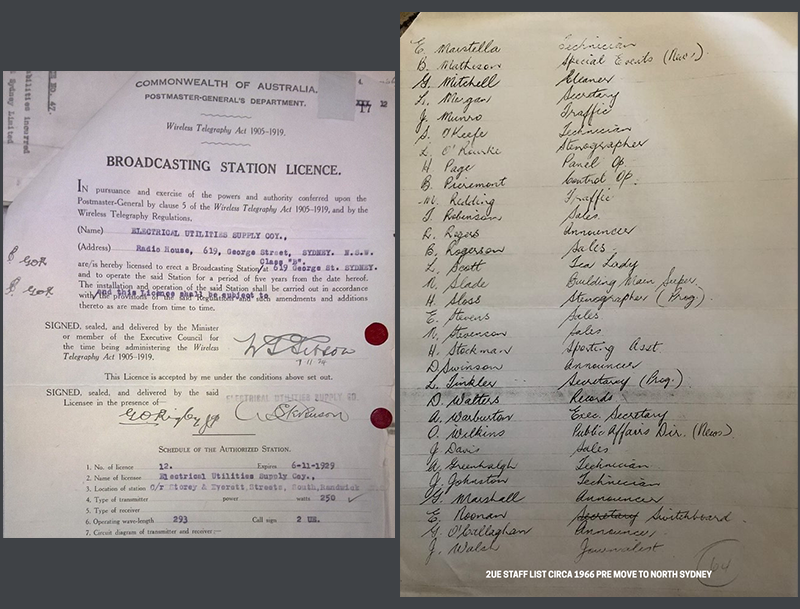 COMMONWEALTH OF AUSTRALIA.
POSTMASTER-GENERAL'S DEPARTMENT.
17
12
Wireless Telegraphy Act 1905-1919.
BROADCASTING STATION LICENCE.
IN pursuance and exercise of the powers and authority conferred upon the
Postmaster-General by clause 5 of the Wireless Telegraphy Act 1905-1919, and by the
Wireless Telegraphy Regulations.
(Name) ELECTRICAL UTILITIES SUPPLY COY.,
(Address) Radio House, 619, George Street, SYDNEY. N.S.W.
Class "B".
are/is hereby licensed to erect a Broadcasting Station at 619 George St. SYDNEY.
and to operate the said Station for a period of five years from the date hereof.
The installation and operation of the said Station shall be carried out in accordance
and this Licence shall be subject to
with the provisions of the said Regulations and such amendments and additions
thereto as are made from time to time.
SIGNED, sealed, and delivered by the Minister
or member of the Executive Council for
the time being administering the Wireless
Telegraphy Act 1905-1919.
This Licence is accepted by me under the conditions above set out.
SIGNED, sealed, and delivered by the said
Licensee in the presence of
ELECTRICAL UTILITIES SUPPLY CO.
SCHEDULE OF THE AUTHORIZED STATION.
1. No. of licence 12. Expires 6-11-1929
2. Name of licensee Electrical Utilities Supply Coy.,
3. Location of station C/r Storey & Everett Streets, South Randwick
4. Type of transmitter power watts 250
5. Type of receiver
6. Operating wave-length 293 Call sign 2 UE.
7. Circuit diagram of transmitter and receiver:—
E. Maistella Technician
B. Mathieson Special Events (News).
G. Mitchell Cleaner
L. Morgan Secretary
J. Munro Traffic
S. O'Keefe Technician
L. O'Rourke Stenographer
H. Page Panel Op.
B. Pieremont Control Op.
M. Redding Traffic
T. Robinson Sales.
R. Rogers Announcer
B. Rogerson Sales.
L. Scott Tea Lady
N. Slade Building Main Super.
H. Sloss Stenographer (Prog).
E. Stevens Sales
N. Stevenson Sales
H. Stockman Sporting Asst.
D Swinson Announcer
L. Tinkler Secretary (Prog.)
D. Watters Records
A. Warburton Exec. Secretary
O. Wilkins Public Affairs Dir. (News).
J Davis Sales
A. Greenhalgh Technician
J. Johnston Technician
G. Marshall Announcer
E. Noonan Secretary Switchboard
G. O'Callaghan Announcer
J. Walsh Journalist
64
2UE STAFF LIST CIRCA 1966 PRE MOVE TO NORTH SYDNEY